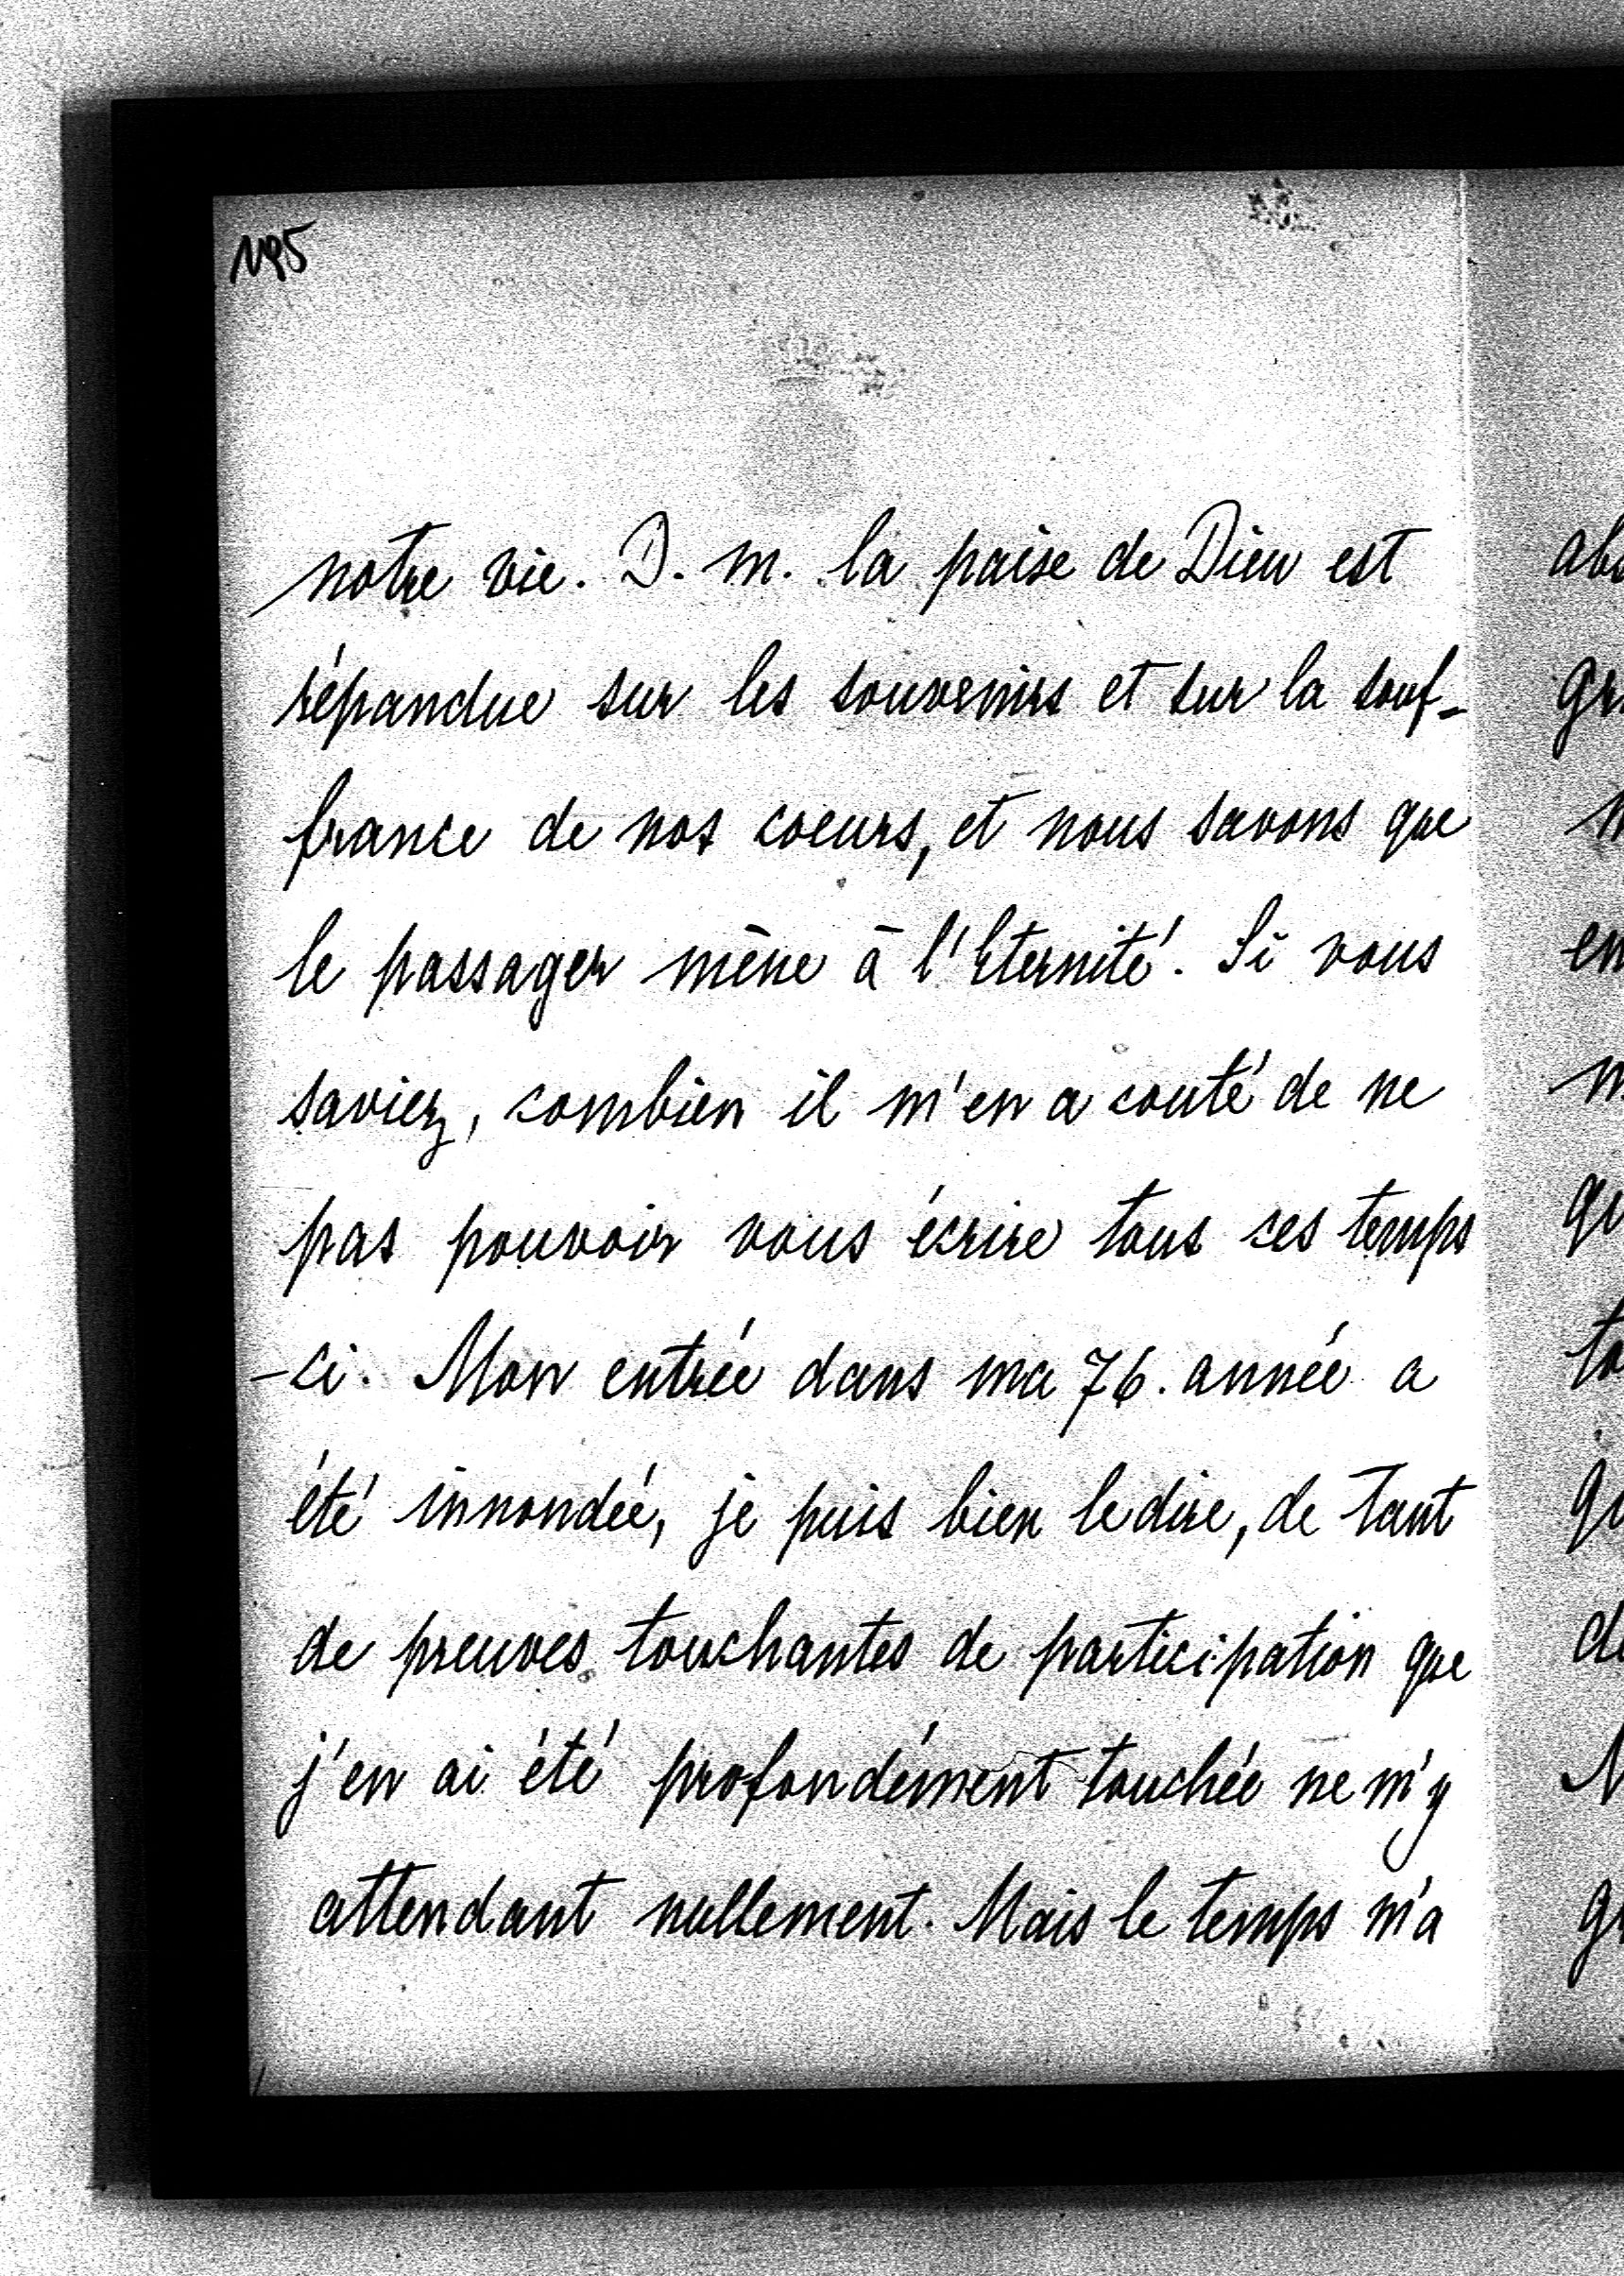 notre vie. D. m. la paise de Dieu est
répandue sur les souvenirs et sur la souf-
france de nos coeurs, et nous savons que
le passager mène à l'Eternité. Si vous
saviez, combien il m'en a couté de ne
pas pouvoir vous écrire tous ces temps
-ci. Mon entrée dans ma 76. année a
été innondée, je puis bien le dire, de tant
de preuves touchantes de participation que
j'en ai été profondément touchée ne m'y
attendant nullement. Mais le temps m'a